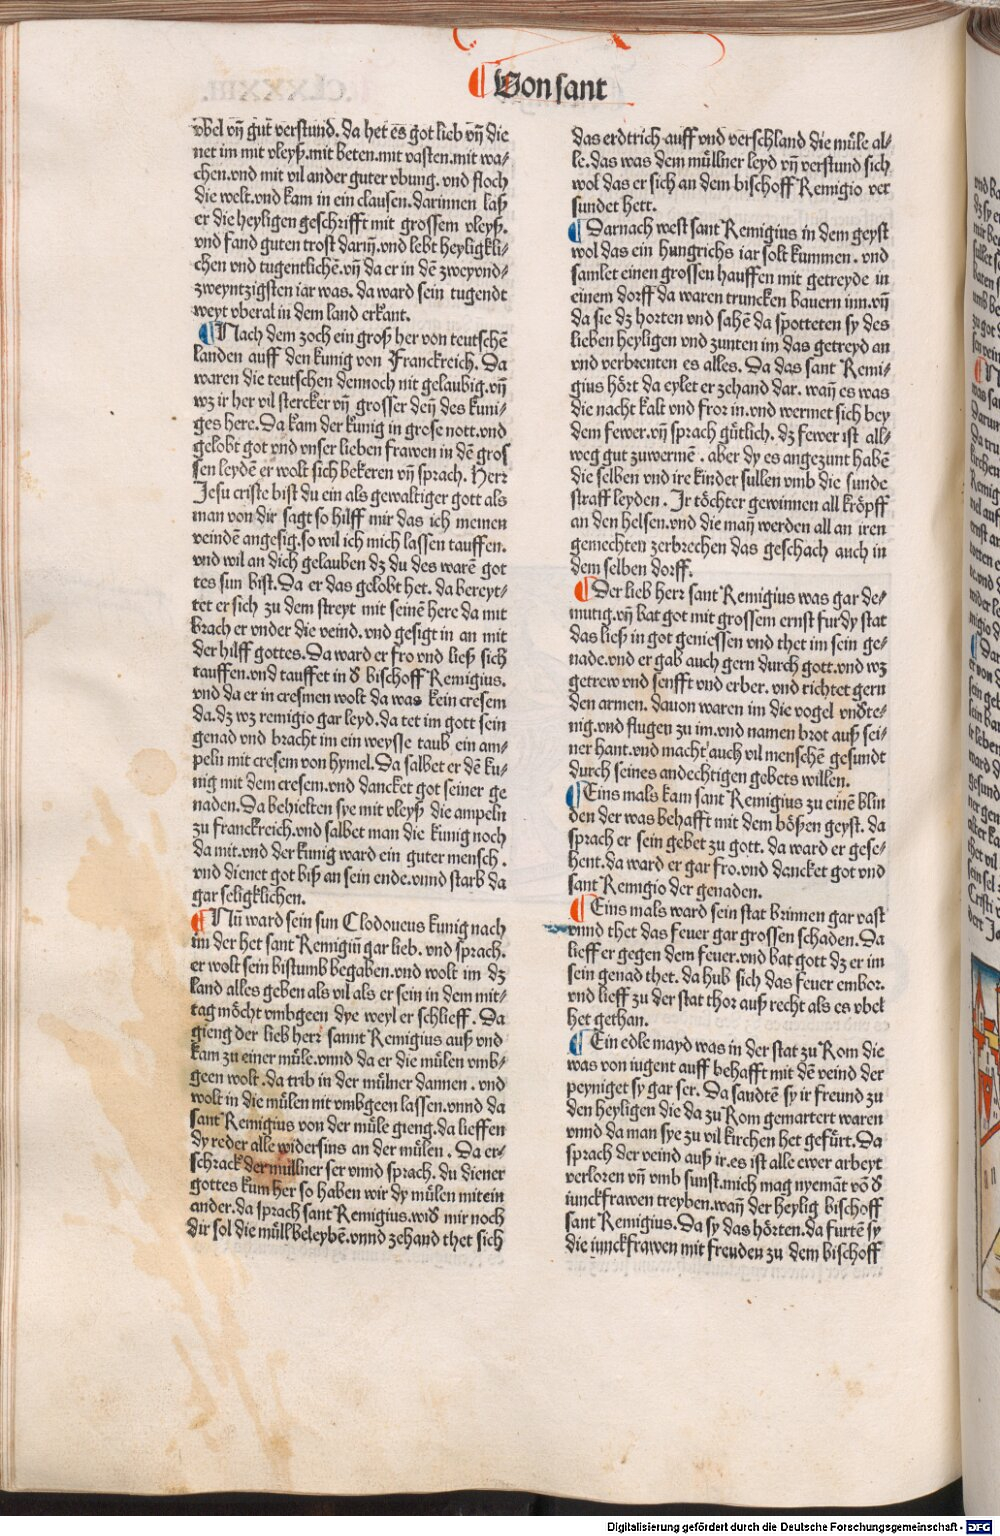 Von sant
vbel vn̄ gut verstund. da het es got lieb vn̄ die
net im mit vleyß. mit beten. mit vasten. mit wa⸗
chen. vnd mit vil ander guter vbung. vnd floch
die welt. vnd kam in ein clausen. darinnen laß
er die heyligen geschrifft mit grossem vleyß.
vnd fand guten trost darin̄. vnd lebt heyligkli⸗
chen vnd tugentlichē. vn̄ da er in dē zweyvnd⸗
zweyntzigsten iar was. da ward sein tugendt
weyt vberal in dem land erkant.
Nach dem zoch ein groß her von teutschē
landen auff den kunig von Franckreich. Da
waren die teutschen dennoch nit gelaubig. vn̄
wz ir her vil stercker vn̄ grosser den̄ des kuni⸗
ges here. Da kam der kunig in grose nott. vnd
gelobt got vnd vnser lieben frawen in dē gros
sen leydē er wolt sich bekeren vn̄ sprach. Herr
Jesu criste bist du ein als gewaltiger gott als
man von dir sagt so hilff mir das ich meinen
veindē angesig. so wil ich mich lassen tauffen.
vnd wil an dich gelauben dz du des warē got
tes sun bist. Da er das gelobt het. da bereyt⸗
tet er sich zu dem streyt mit seinē here da mit
brach er vnder die veind. vnd gesigt in an mit
der hilff gottes. Da ward er fro vnd ließ sich
tauffen. vnd tauffet in d̄ bischoff Remigius.
vnd da er in cresmen wolt da was kein cresem
da. dz wz remigio gar leyd. da tet im gott sein
genad vnd bracht im ein weysse taub ein am⸗
peln mit cresem von hymel. Da salbet er dē ku⸗
nig mit dem cresem. vnd dancket got seiner ge
naden. Da behielten sye mit vleyß die ampeln
zu franckreich. vnd salbet man die kunig noch
da mit. vnd der kunig ward ein guter mensch.
vnd dienet got biß an sein ende. vnnd starb da
gar seligklichen.
Nū ward sein sun Clodoueus kunig nach
im der het sant Remigiū gar lieb. vnd sprach.
er wolt sein bistumb begaben. vnd wolt im dz
land alles geben als vil als er sein in dem mit⸗
tag möcht vmbgeen dye weyl er schlieff. Da
gieng der lieb herr sannt Remigius auß vnd
kam zu einer müle. vnnd da er die mülen vmb⸗
geen wolt. da trib in der mülner dannen. vnd
wolt in die mülen nit vmbgeen lassen. vnnd da
sant Remigius von der müle gieng. da lieffen
dy reder alle widersins an der mülen. Da er⸗
schrack der müllner ser vnnd sprach. du diener
gottes kum her so haben wir dy mülen mitein
ander. da sprach sant Remigius. wid̄ mir noch
dir sol die müll beleybē. vnnd zehand thet sich
das erdtrich auff vnd verschland die müle al⸗
le. das was dem müllner leyd vn̄ verstund sich
wol das er sich an dem bischoff Remigio ver
sundet hett.
Darnach west sant Remigius in dem geyst
wol das ein hungrichs iar solt kummen. vnd
samlet einen grossen hauffen mit getreyde in
einem dorff da waren truncken bauern inn. vn̄
da sie dz horten vnd sahē da spotteten sy des
lieben heyligen vnd zunten im das getreyd an
vnd verbrenten es alles. Da das sant Remi⸗
gius hört da eylet er zehand dar. wan̄ es was
die nacht kalt vnd fror in. vnd wermet sich bey
dem fewer. vn̄ sprach gütlich. dz fewer ist all⸗
weg gut zuwermē. aber dy es angezunt habē
die selben vnd ire kinder sullen vmb die sunde
straff leyden. Ir töchter gewinnen all kröpff
an den helsen. vnd die man̄ werden all an iren
gemechten zerbrechen das geschach auch in
dem selben dorff.
Der lieb herr sant Remigius was gar de⸗
mutig. vn̄ bat got mit grossem ernst fur dy stat
das ließ in got geniessen vnd thet im sein ge⸗
nade. vnd er gab auch gern durch gott. vnd wz
getrew vnd senfft vnd erber. vnd richtet gern
den armen. dauon waren im die vogel vnd̄te⸗
nig. vnd flugen zu im. vnd namen brot auß sei⸗
ner hant. vnd macht auch vil menschē gesundt
durch seines andechtigen gebets willen.
Eins mals kam sant Remigius zu einē blin
den der was behafft mit dem bößen geyst. da
sprach er sein gebet zu gott. da ward er gese⸗
hent. da ward er gar fro. vnd dancket got vnd
sant Remigio der genaden.
Eins mals ward sein stat brinnen gar vast
vnnd thet das feuer gar grossen schaden. Da
lieff er gegen dem feuer. vnd bat gott dz er im
sein genad thet. da hub sich das feuer embor.
vnd lieff zu der stat thor auß recht als es vbel
het gethan.
Ein edle mayd was in der stat zu Rom die
was von iugent auff behafft mit dē veind der
peyniget sy gar ser. Da sandtē sy ir freund zu
den heyligen die da zu Rom gemartert waren
vnnd da man sye zu vil kirchen het gefürt. Da
sprach der veind auß ir. es ist alle ewer arbeyt
verloren vn̄ vmb sunst. mich mag nyemāt vō d̄
iunckfrawen treyben. wan̄ der heylig bischoff
sant Remigius. Da sy das hörten. da furtē sy
die iunckfrawen mit freuden zu dem bischoff
Digitalisierung gefördert durch die Deutsche Forschungsgemeinschaft - DFG